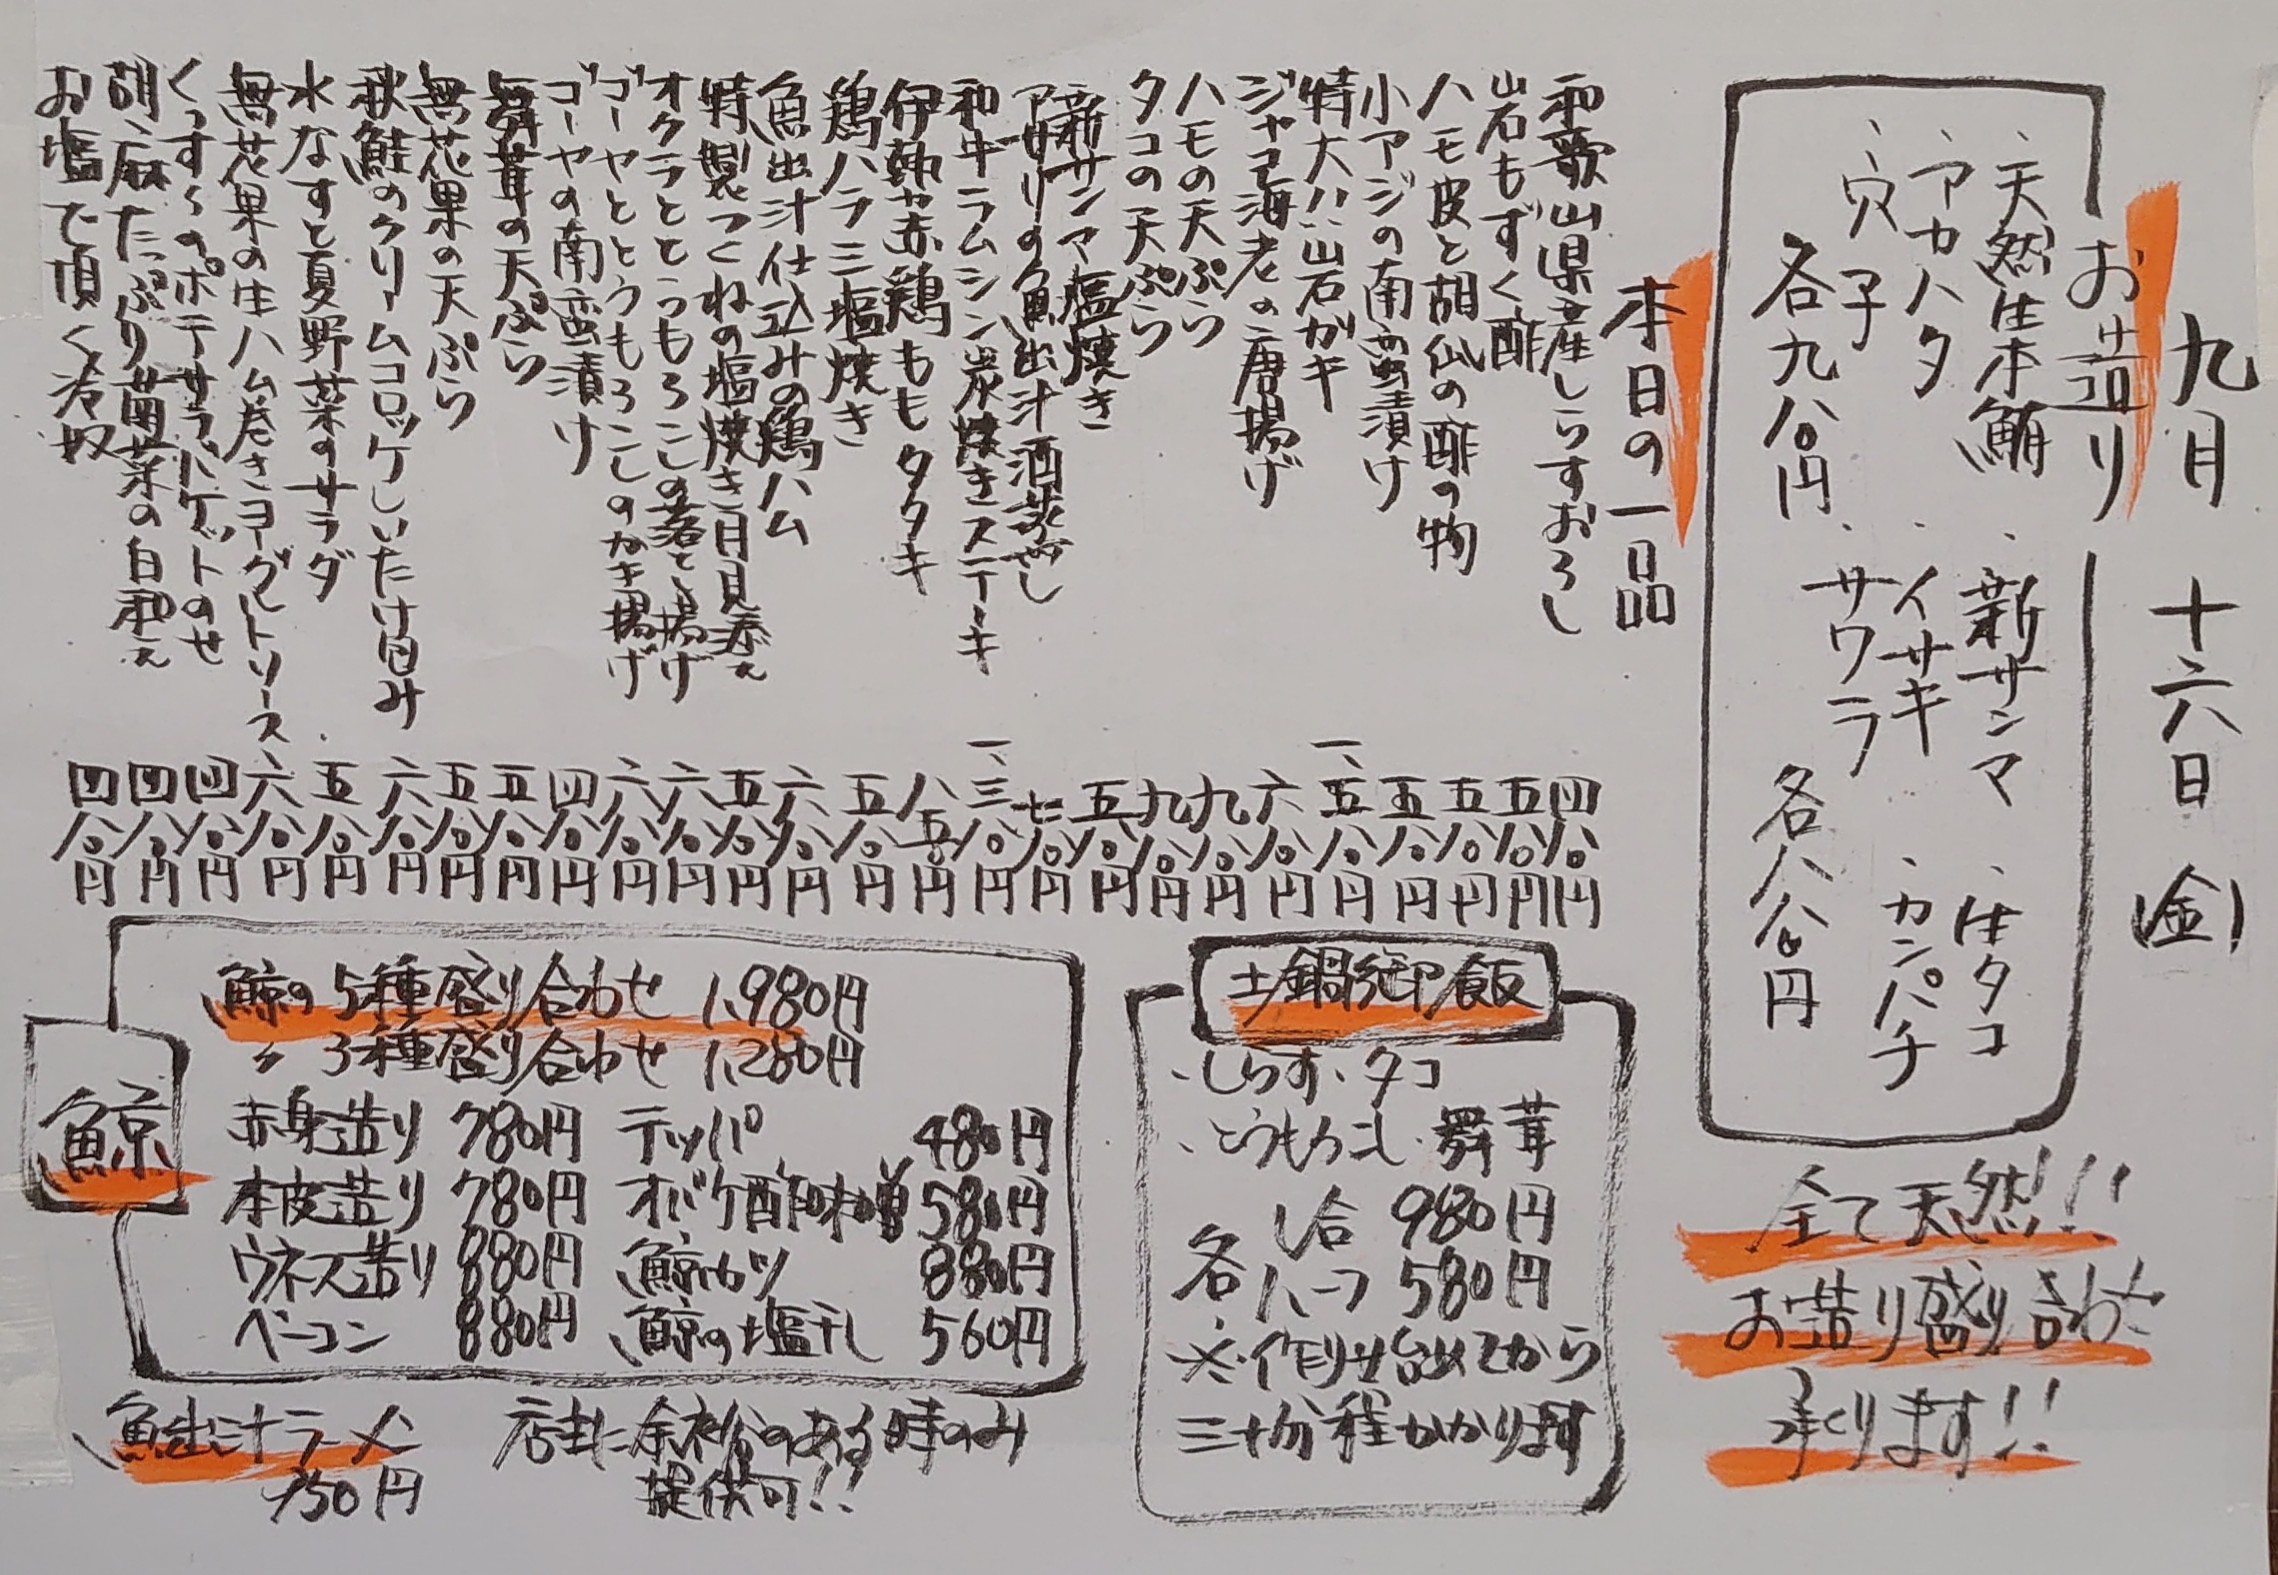 九月 十六日 (金)
お造り
、天然生本鮪 、新サンマ 、生タコ
、アカハタ 、イサキ 、カンパチ
、穴子 、サワラ
各九八〇円 各八八〇円
全て天然!!
お造り盛り合わせ
承ります!!
本日の一品
和歌山県産しらすおろし 四八〇円
岩もずく酢 五八〇円
ハモ皮と胡瓜の酢の物 五八〇円
小アジの南蛮漬け 五八〇円
特大!!岩ガキ 一、五八〇円
ジャコ海老の唐揚げ 六八〇円
ハモの天ぷら 九八〇円
タコの天ぷら 九八〇円
新サンマ塩焼き 五八〇円
アサリの魚出汁酒蒸し 七八〇円
和牛ラムシン炭焼きステーキ 一、三八〇円
伊勢赤鶏ももタタキ 八五〇円
鶏ハラミ塩焼き 五八〇円
魚出汁仕込みの鶏ハム 六八〇円
特製つくねの塩焼き月見添え 五八〇円
オクラととうもろこしの落とし揚げ 六八〇円
ゴーヤととうもろこしのかき揚げ 六八〇円
ゴーヤの南蛮漬け 四八〇円
舞茸の天ぷら 五八〇円
無花果の天ぷら 五八〇円
秋鮭のクリームコロッケしいたけ包み 六八〇円
水なすと夏野菜のサラダ 五八〇円
無花果の生ハム巻きヨーグルトソース 六八〇円
くんすけのポテサラ、バゲットのせ 四八〇円
胡麻たっぷり菌菜の白和え 四八〇円
お塩で頂く冷奴 四八〇円
土鍋御飯
、しらす 、タコ
、とうもろこし 、舞茸
各、一合 980円
ハーフ 580円
※作り出してから
三十分程かかります
鯨
鯨の5種盛り合わせ 1,980円
〃 3種盛り合わせ 1,280円
赤身造り 780円 テッパ 480円
本皮造り 780円 オバケ酢味噌 580円
ウネス造り 880円 鯨カツ 880円
ベーコン 880円 鯨の塩干し 560円
魚出汁ラーメン
750円
店主に余裕のある時のみ
提供可!!